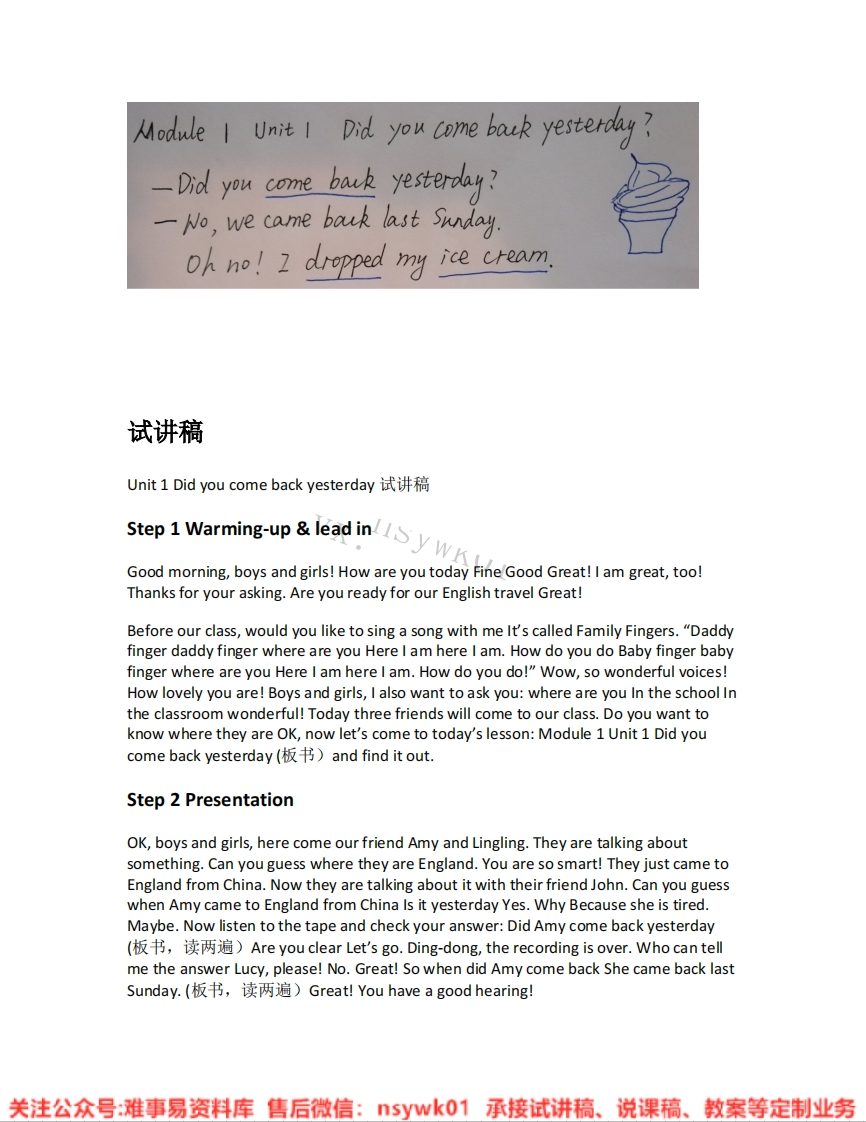 Module 1 Unit 1 Did you come back yesterday?
—Did you come back yesterday?
—No, we came back last Sunday.
Oh no! I dropped my ice cream.
试讲稿
Unit 1 Did you come back yesterday 试讲稿
Step 1 Warming-up & lead in
Good morning, boys and girls! How are you today Fine Good Great! I am great, too!
Thanks for your asking. Are you ready for our English travel Great!
Before our class, would you like to sing a song with me It’s called Family Fingers. “Daddy
finger daddy finger where are you Here I am here I am. How do you do Baby finger baby
finger where are you Here I am here I am. How do you do!” Wow, so wonderful voices!
How lovely you are! Boys and girls, I also want to ask you: where are you In the school In
the classroom wonderful! Today three friends will come to our class. Do you want to
know where they are OK, now let’s come to today’s lesson: Module 1 Unit 1 Did you
come back yesterday (板书）and find it out.
Step 2 Presentation
OK, boys and girls, here come our friend Amy and Lingling. They are talking about
something. Can you guess where they are England. You are so smart! They just came to
England from China. Now they are talking about it with their friend John. Can you guess
when Amy came to England from China Is it yesterday Yes. Why Because she is tired.
Maybe. Now listen to the tape and check your answer: Did Amy come back yesterday
(板书，读两遍）Are you clear Let’s go. Ding-dong, the recording is over. Who can tell
me the answer Lucy, please! No. Great! So when did Amy come back She came back last
Sunday. (板书，读两遍）Great! You have a good hearing!
关注公众号:难事易资料库 售后微信：nsywk01 承接试讲稿、说课稿、教案等定制业务